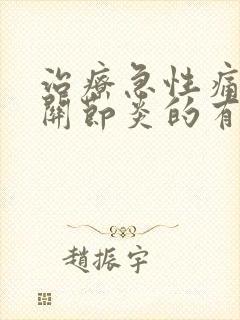 治療急性痛
關節炎的有
趙振宇